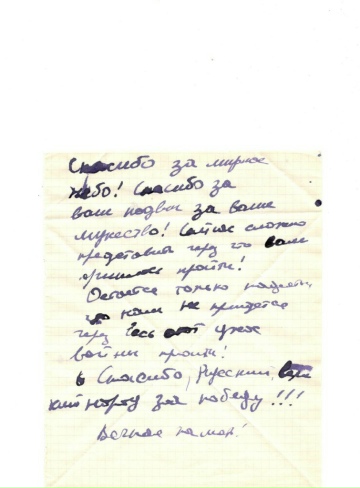 Спасибо за мирное
небо! Спасибо за
ваш подвиг за ваше
мужество! Сейчас сложно
представить через что вам
пришлось пройти!
Остаётся только надеятся
что нам не придётся
через весь этот ужас
войны пройти!
Спасибо, Русский,
народу за победу!!!
Вечная память!